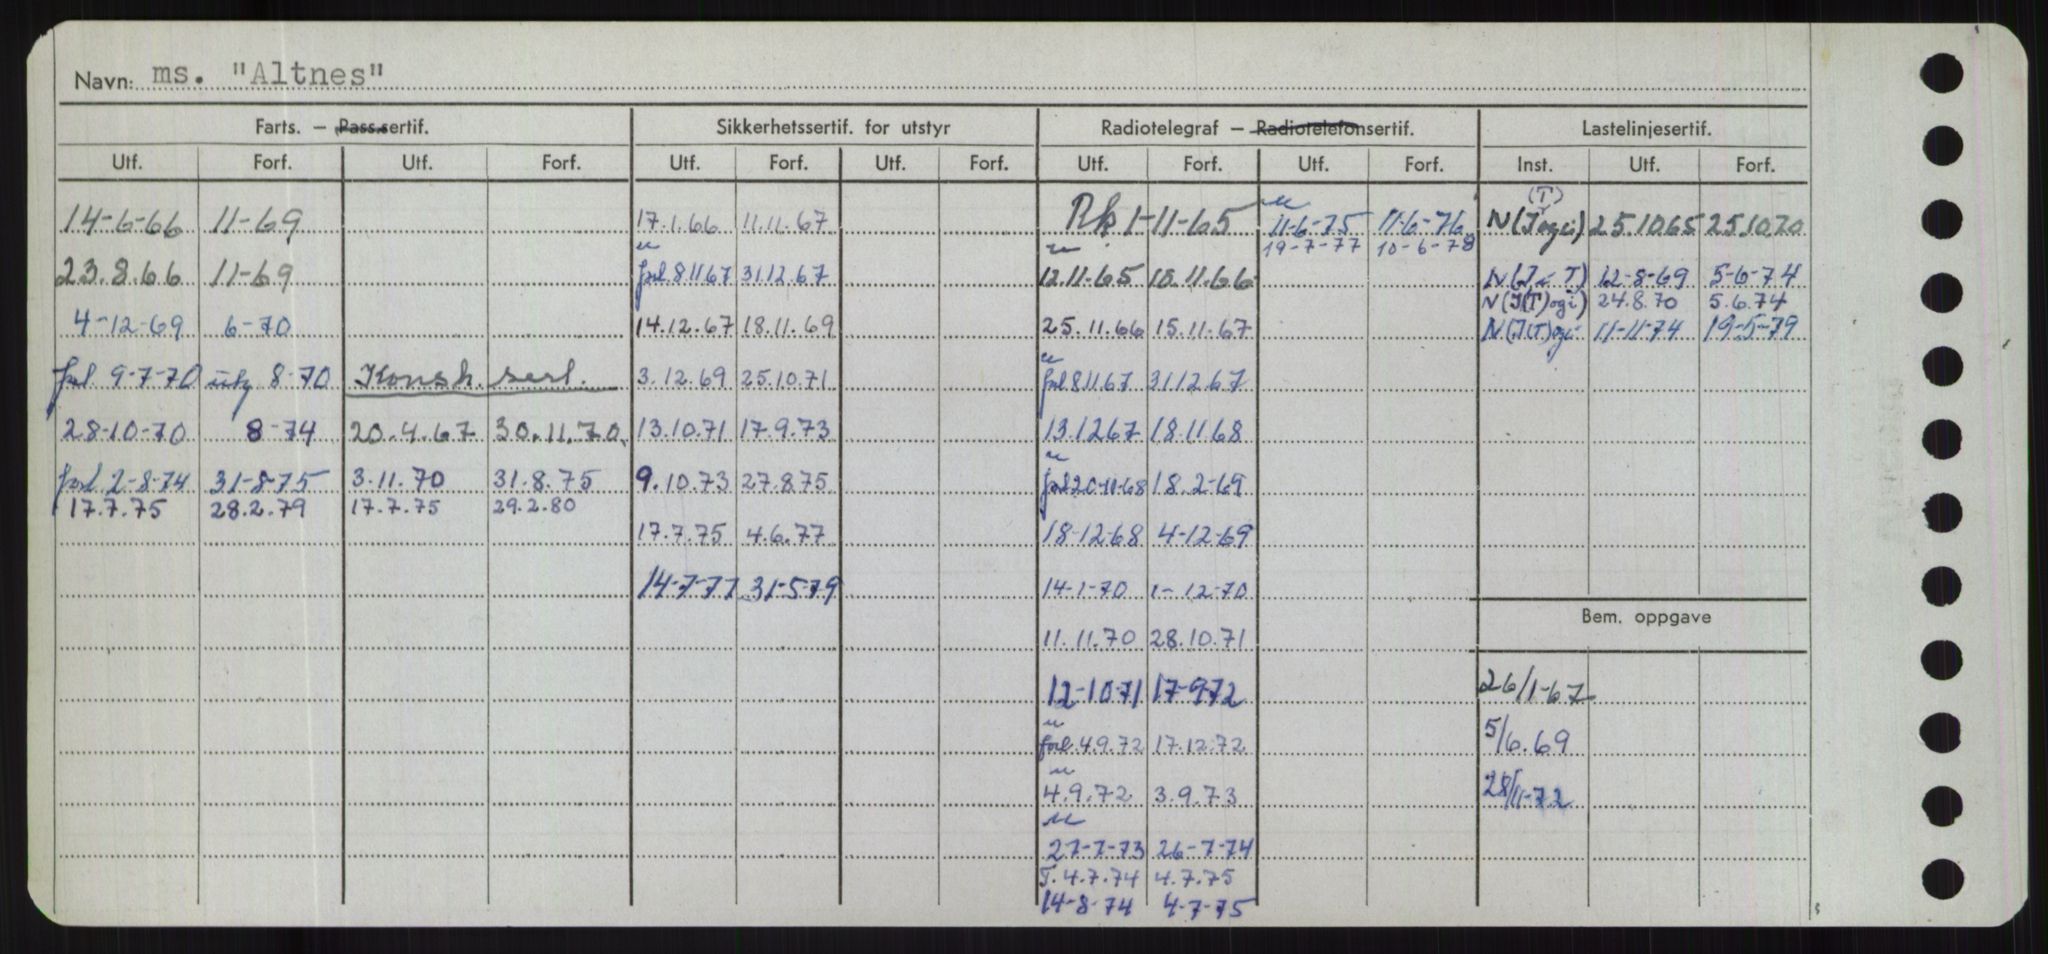 Navn: ms. "Altnes"
Farts. — Pass.sertif. Sikkerhetssertif. for utstyr Radiotelegraf — Radiotelefonsertif. Lastelinjesertif.
Utf. Forf. Utf. Forf. Utf. Forf. Utf. Forf. Utf. Forf. Utf. Forf. Inst. Utf. Forf.
14-6-66 11-69 17.1.66 11.11.67 Rk 1-11-65 11-6-75 11-6-76 N(Iogi) (T) 25.10.65 25.10.70
19-7-77 10-6-78
23.8.66 11-69 forl 8.11.67 31.12.67 12.11.65 10.11.66 12-8-69 5-6-74
N(I(T)ogi) 24.8.70 5.6.74
4-12-69 6-70 14.12.67 18.11.69 25.11.66 15.11.67 N(I(T)ogi 11-11-74 19-5-79
forl 9-7-70 utg 8-70 Konstr. sert. 3.12.69 25.10.71 forl 8.11.67 31.12.67
28-10-70 8-74 20.4.67 30.11.70 13.10.71 17.9.73 13.12.67 18.11.68
forl 2-8-74 31-8-75 3.11.70 31.8.75 9.10.73 27.8.75 forl 20-11-68 18.2-69
17.7.75 28.2.79 17.7.75 29.2.80
17.7.75 4.6.77 18-12-68 4-12-69
14-7-77 31-5-79 14-1-70 1-12-70
11.11.70 28.10.71
Bem. oppgave
12-10-71 17-9-72 26/1-67
forl. 4.9.72 17.12.72 5/6.69
4.9.72 3.9.73 28/11-72
27-7-73 26-7-74
T. 4.7.74 4.7.75
14-8-74 4-7-75